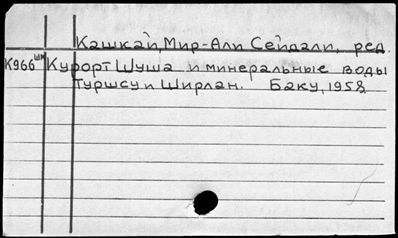 Кашкай, Мир-Али Сейдали, ред.
К966 шк Курорт Шуша и минеральные воды
Туршсу и Ширлан. Баку, 1958